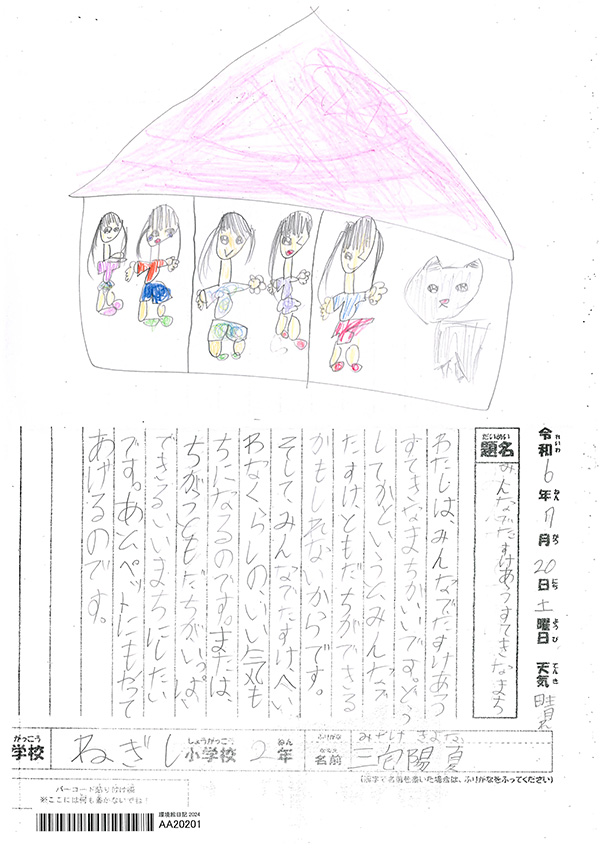 令和6年7月20日土曜日 天気 晴れ
れいわ ねん がつ にち ようび てんき
だいめい
題名 みんなでたすけあうすてきなまち
わたしは、みんなでたすけあう
すてきなまちがいいです。どう
してかというと、みんなで
たすけ、ともだちができる
かもしれないからです。
そして、みんなでたすけへい
わなくらしの、いい気も
ちになるのです。または、
ちがうともだちがいっぱい
できるいいまちにしたい
です。あとペットにもやって
あげるのです。
がっこう しょうがっこう ねん ふりがな みやけ
学校 ねぎし 小学校 2年 なまえ 名前 三宅陽夏
(漢字で名前を書いた場合は、ふりがなをふってください)
バーコード貼り付け欄
※ここには何も書かないでね!
環境絵日記2024
AA20201